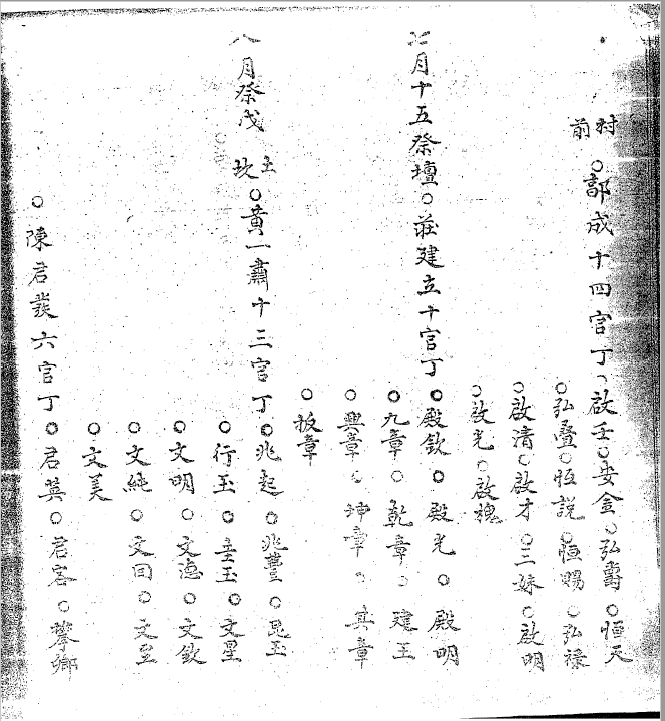 村前○郭成十四官丁○啟壬○安金○弘爵○恒天
○弘疊○恒説○恒賜○弘祿
○啟清○啟才○三妹○啟明
○啟光○啟槐
七月十五祭壇○莊建立十官丁○殿欽○殿光○殿明
○九章○乾章○建王
○興章○坤章○其章
○扳章
八月祭戊土坎○黃一肅十三官丁○兆起○兆豐○昆玉
○行玉○圭玉○文星
○文明○文德○文欽
○文純○文回○文至
○文美
○陳君發六官丁○君英○君客○攀鄉